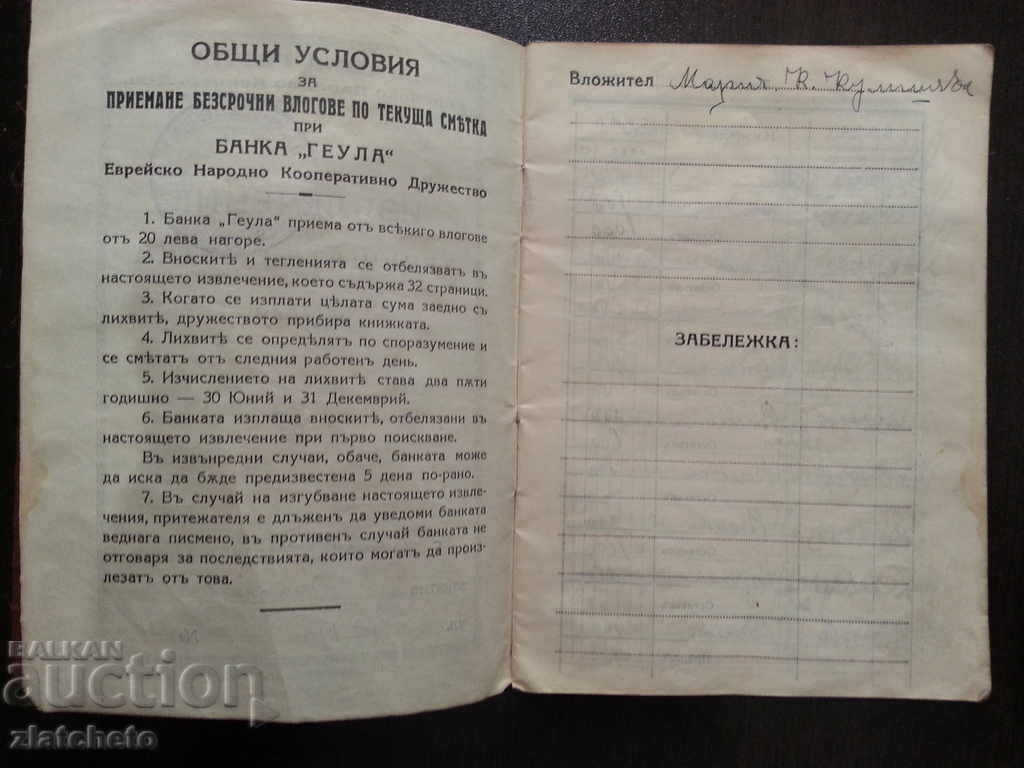 ОБЩИ УСЛОВИЯ
ЗА
ПРИЕМАНЕ БЕЗСРОЧНИ ВЛОГОВЕ ПО ТЕКУЩА СМѢТКА
ПРИ
БАНКА „ГЕУЛА“
Еврейско Народно Кооперативно Дружество
1. Банка „Геула“ приема отъ всѣкиго влогове
отъ 20 лева нагоре.
2. Вноскитѣ и тегленията се отбелязватъ въ
настоящето извлечение, което съдържа 32 страници.
3. Когато се изплати цѣлата сума заедно съ
лихвитѣ, дружеството прибира книжката.
4. Лихвитѣ се опредѣлятъ по споразумение и
се смѣтатъ отъ следния работенъ день.
5. Изчислението на лихвитѣ става два пѫти
годишно — 30 Юний и 31 Декемврий.
6. Банката изплаща вноскитѣ, отбелязани въ
настоящето извлечение при първо поискване.
Въ извънредни случаи, обаче, банката може
да иска да бѫде предизвестена 5 дена по-рано.
7. Въ случай на изгубване настоящето извле-
чения, притежателя е длъженъ да уведоми банката
веднага писмено, въ противенъ случай банката не
отговаря за последствията, които могатъ да произ-
лезатъ отъ това.
Вложител Мария К.
ЗАБЕЛЕЖКА:
BALKAN
auction
zlatcheto